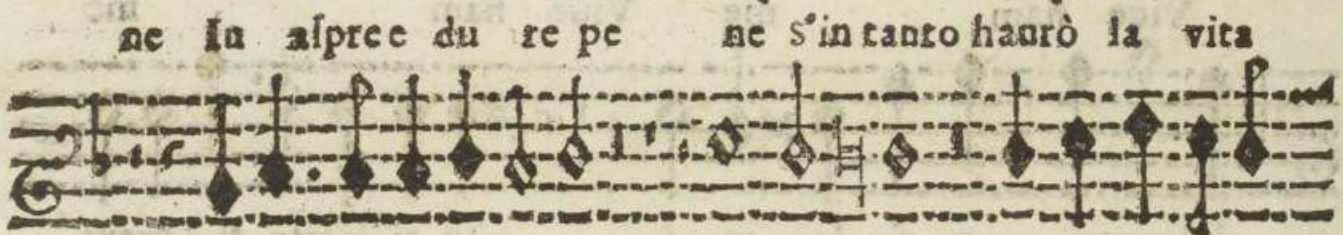 ne In aſpre e du re pe ne s'in tanto haurò la vita